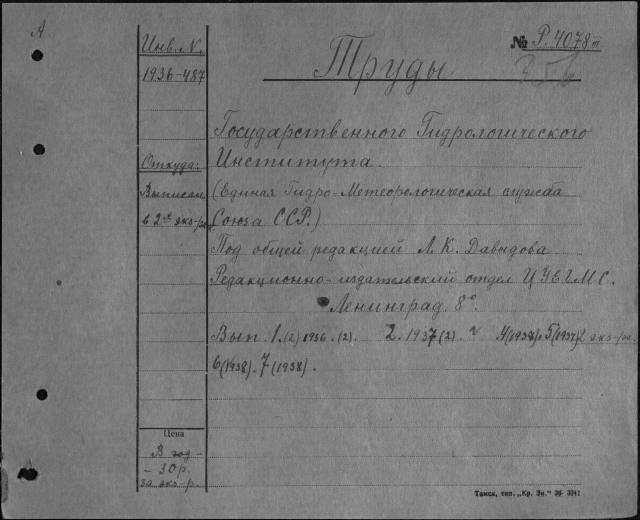 А
Инв. N.
1936-487
№ Р. 4078 III
Труды
Государственного Гидрологического
Института.
Откуда:
Выписан
в 2-х экз-рах
(Единая Гидро-Метеорологическая служба
Союза ССР.)
Под общей редакцией Л. К. Давыдова
Редакционно-издательский отдел ЦУЕГМС.
Ленинград. 8°.
Вып. 1.(2) 1936.(2). 2. 1937(2) 4(1938), 5(1937) 2 экз-ра.
6(1938). 7(1938).
Цена
В год -
- 30 р.
за экз-р.
Томск, тип. „Кр. Зн." 36 3341